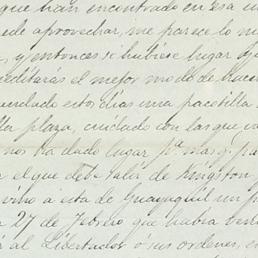 que han encontrado en esa
puede aprovechar, me parece lo m
, y entonces si hubiese lugar
meditarás el mejor modo de hacer
mandado estos dias una pacotilla
plaza, cuidado con las que va
nos ha dado lugar pa. mas q. pa
el que debe salir de Kingston
vino á esta de Guayaquil un p
27 de Febrero que habia
al Libertador ó sus ordenes, en